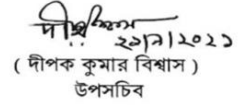 ২১/৯/২০২১
( দীপক কুমার বিশ্বাস )
উপসচিব